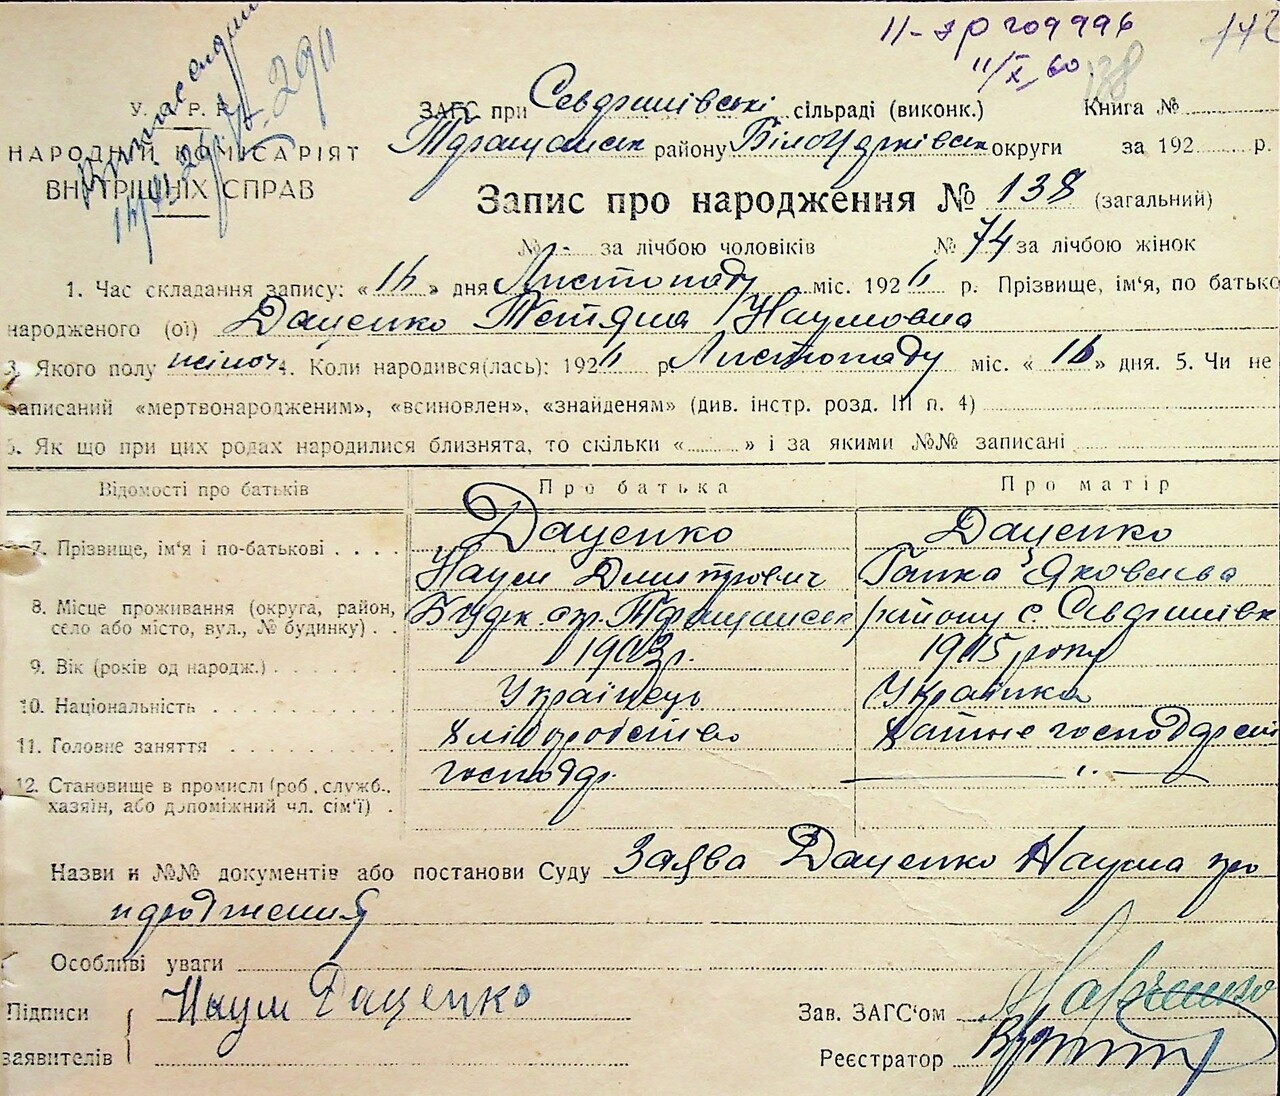 II-ЯР 209996
11/X 60
138
У. Р. Р.
НАРОДНІЙ КОМІСАРІЯТ
ВНУТРІШНІХ СПРАВ
ЗАГС при сільраді (виконк.) Книга №
району Білоцерківськ округи за 192 р.
Запис про народження № 138 (загальний)
№ - за лічбою чоловіків № 74 за лічбою жінок
1. Час складання запису: « 16 » дня Листопаду міс. 192 р. Прізвище, ім'я, по батькo
народженого (ої) Даценко Тетяна Наумовна
3. Якого полу жіноч 4. Коли народився(лась): 192 р. Листопаду міс. « 16 » дня. 5. Чи не
записаний «мертвонародженим», «всиновлен», «знайденям» (див. інстр. розд. III п. 4)
6. Як що при цих родах народилися близнята, то скільки « » і за якими №№ записані
Відомості про батьків Про батька Про матір
7. Прізвище, ім'я і по-батькові Даценко Даценко
Наум Дмитрович Ганка Яковлєва
8. Місце проживання (округа, район, село або місто, вул., № будинку) району с.
9. Вік (років од народж.) 1903 р. 1905 року
10. Національність Українець Українка
11. Головне заняття Хліборобство Хатнє господарст
12. Становище в промислі (роб., служб., хазяїн, або допоміжний чл. сім'ї) господар.
Назви и №№ документів або постанови Суду Заява Даценко Наума про
народження
Особливі уваги
Підписи заявителів Наум Даценко
Зав. ЗАГС'ом
Реєстратор